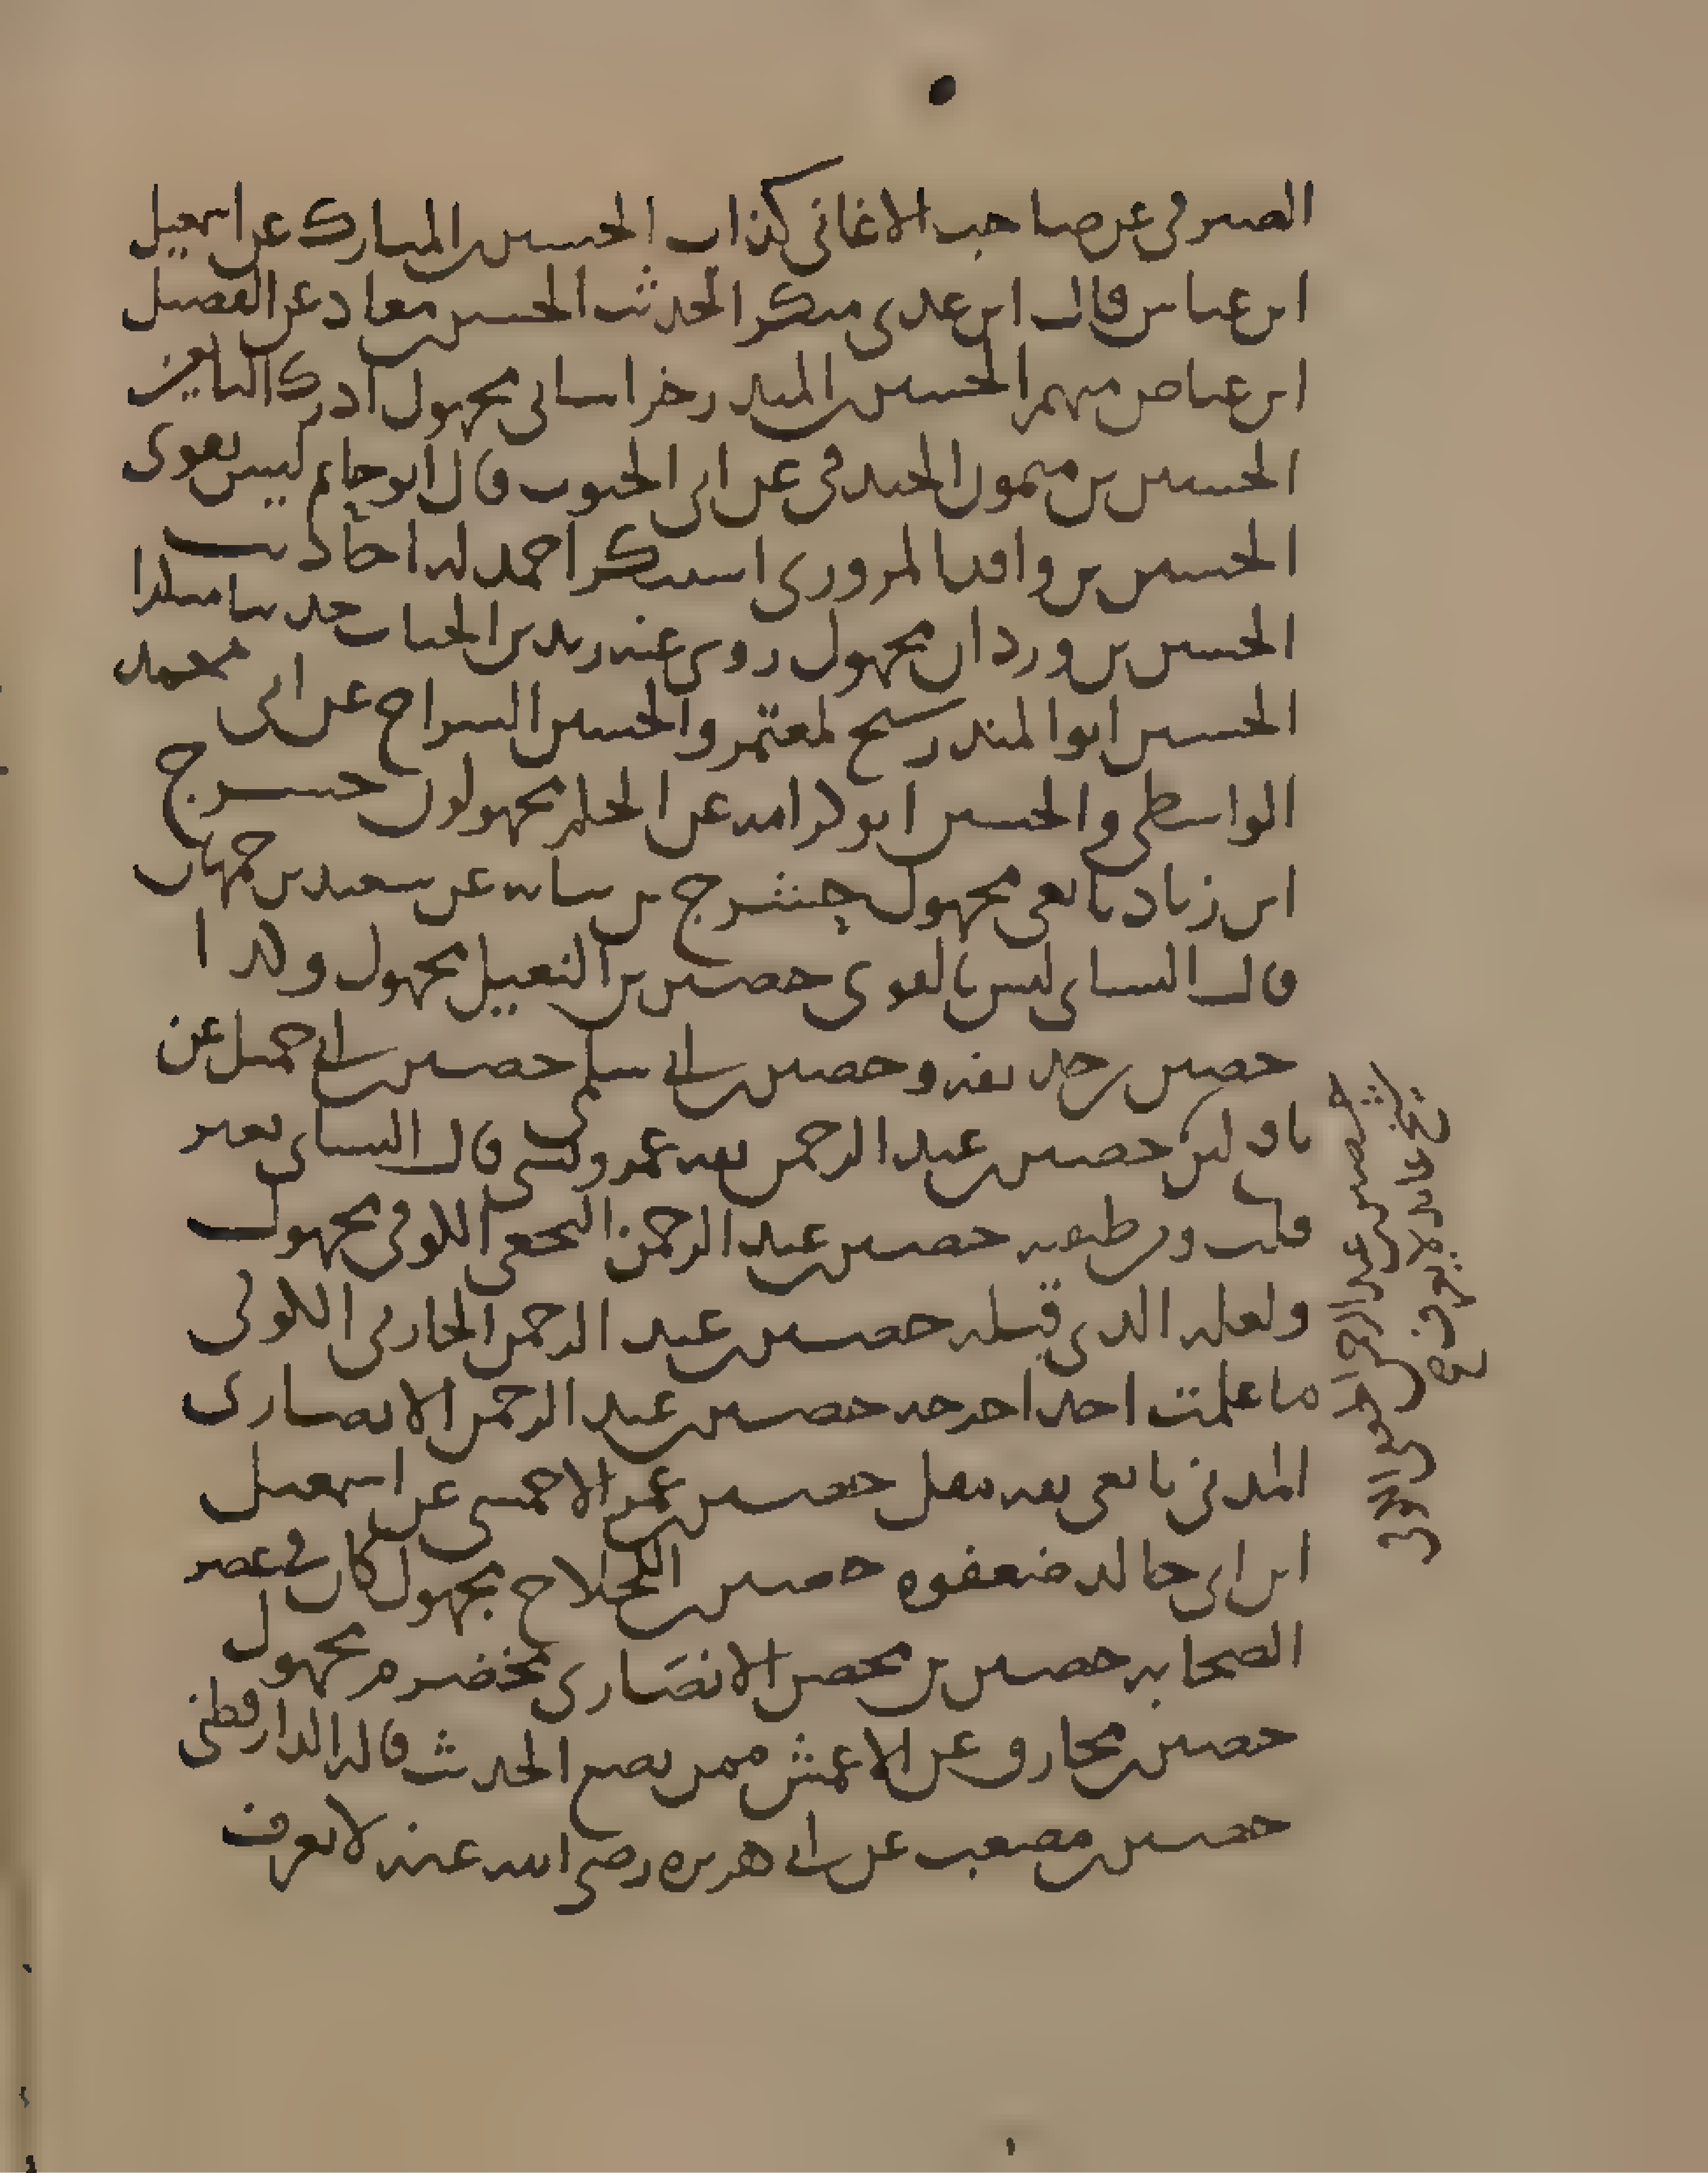 الصيرفي عن صاحب الاغاني كذاب الحسين بن المبارك عن اسمعيل
ابن عياش قال ابن عدي منكر الحديث الحسين بن معاذ عن الفضيل
ابن عياض متهم الحسين بن المنذر خراساني مجهول ادرك التابعين
الحسين بن ميمون الخندفي عن ابي الجنوب قال ابو حاتم ليس بقوي
الحسين بن واقد المروزي استنكر احمد له احاديث
الحسين بن وردان مجهول روى عنه زيد بن الحباب حديثا منكرا
الحسين ابو المنذر شيخ لمعتمر والحسين السراج عن ابي محمد
الواسطي والحسين ابو كرامه عن الحكم مجهولون حشرج
ابن زياد تابعي مجهول حشرج بن نباته عن سعيد بن جمهان
قال النسائي ليس بالقوي حصين بن النعيل مجهول وكذا
حصين بن حذيفه وحصين بن ابي سلمى حصين بن ابي جميل عن
نافع لين حصين بن عبد الرحمن ثقه عمر ونسي قال النسائي تغير
حصين بن عبد الرحمن النخعي الكوفي مجهول
ولعله الذي قبله حصين بن عبد الرحمن الحارثي الكوفي
ما علمت احدا جرحه حصين بن عبد الرحمن الانصاري
المدني تابعي ثقه مقل حصين بن عمر الاحمسي عن اسمعيل
ابن ابي خالد ضعفوه حصين بن اللجلاج مجهول كان في عصر
الصحابه حصين بن محصن الانصاري مخضرم مجهول
حصين بن مخارق عن الاعمش ممن يضع الحديث قاله الدارقطني
حصين بن مصعب عن ابي هريره رضي الله عنه لا يعرف
حصين بن عبد الرحمن الجعفي الكوفي
شيخ عابد لا يعرف صح